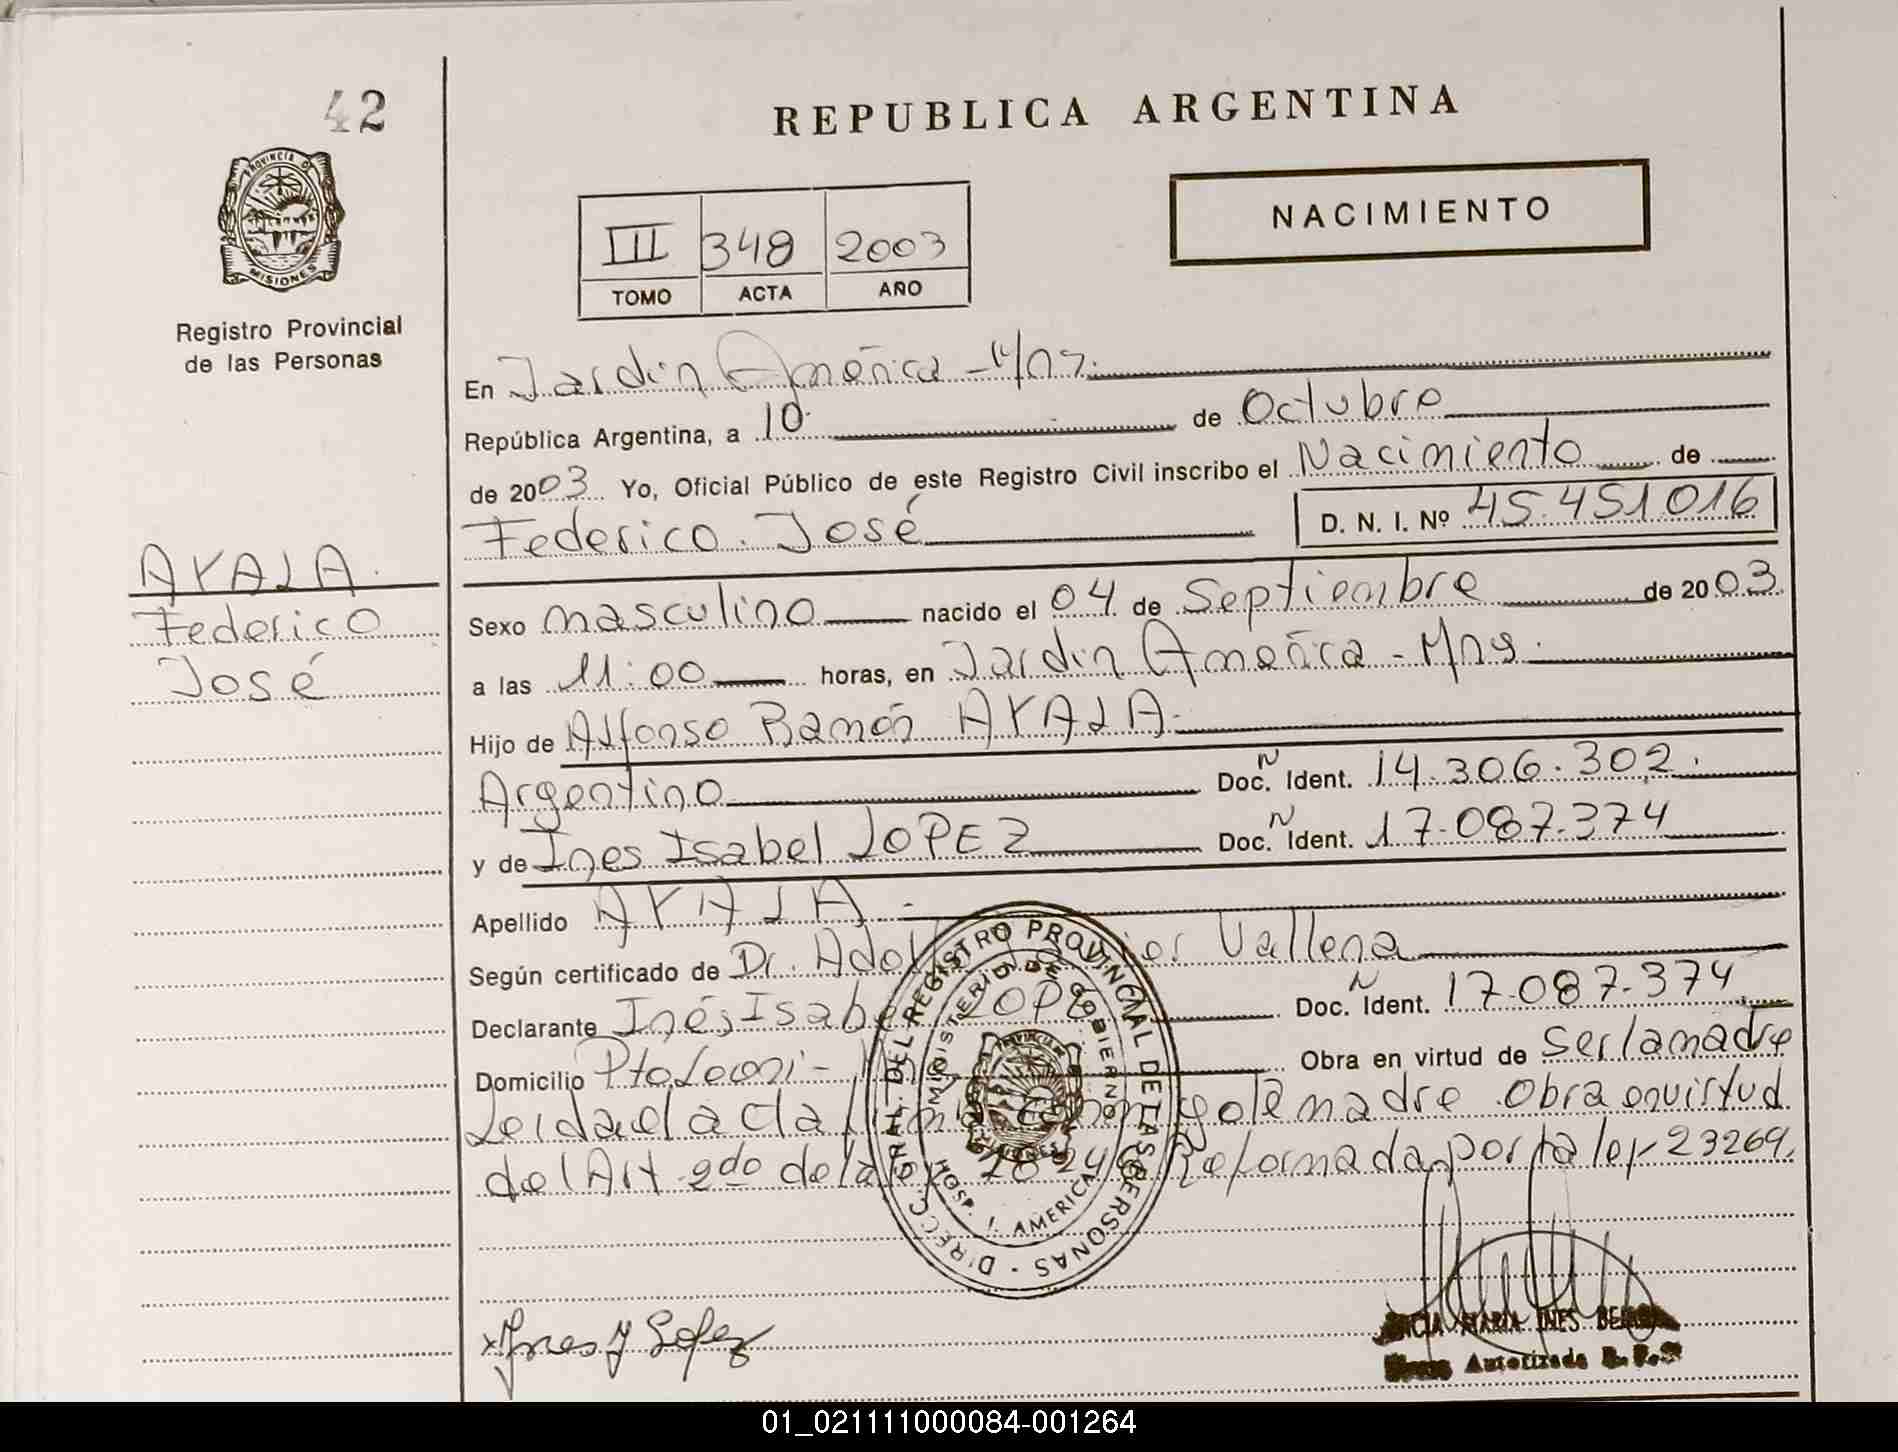 42
REPUBLICA ARGENTINA
PROVINCIA DE
MISIONES
Registro Provincial
de las Personas
NACIMIENTO
III 348 2003
TOMO ACTA AÑO
En Jardin América - Mns.
República Argentina, a 10 de Octubre
de 2003 Yo, Oficial Público de este Registro Civil inscribo el Nacimiento de
Federico José D. N. I. Nº 45.451.016
AYALA.
Federico
José
Sexo masculino nacido el 04 de Septiembre de 2003
a las 11:00 horas, en Jardin América - Mns.
Hijo de Alfonso Ramón AYALA.
Argentino Doc. N Ident. 14.306.302.
y de Ines Isabel LOPEZ Doc. N Ident. 17.087.374
Apellido AYALA.
Según certificado de Dr. Vallena
Declarante Inés Isabel LOPEZ Doc. N Ident. 17.087.374
Domicilio Pto Leoni - Obra en virtud de ser la madre
Leida el acta la madre Obra en virtud
del Art 2do de la Reformada por la ley 23264.
DIRECC. GRAL. DEL REGISTRO PROVINCIAL DE LAS PERSONAS
MINISTERIO DE GOBIERNO
HOSP. J. AMERICA
x Ines Y Lopez
MARIA INES
Autorizada R. P.
01_021111000084-001264